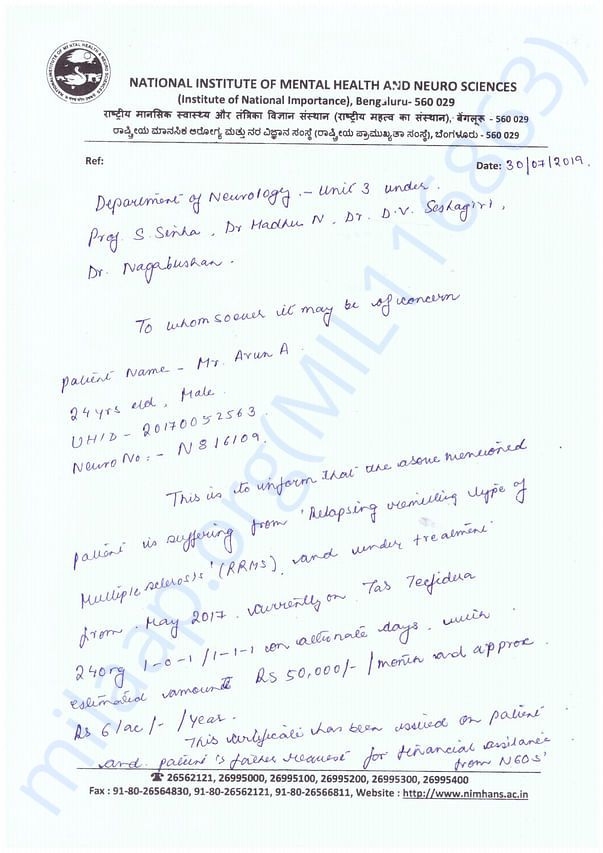 NATIONAL INSTITUTE OF MENTAL HEALTH AND NEURO SCIENCES
(Institute of National Importance), Bengaluru- 560 029
राष्ट्रीय मानसिक स्वास्थ्य और तंत्रिका विज्ञान संस्थान (राष्ट्रीय महत्व का संस्थान), बेंगलूरू - 560 029
ರಾಷ್ಟ್ರೀಯ ಮಾನಸಿಕ ಆರೋಗ್ಯ ಮತ್ತು ನರ ವಿಜ್ಞಾನ ಸಂಸ್ಥೆ (ರಾಷ್ಟ್ರೀಯ ಪ್ರಾಮುಖ್ಯತಾ ಸಂಸ್ಥೆ), ಬೆಂಗಳೂರು - 560 029
Ref:
Date: 30/07/2019.
Department of Neurology - Unit 3 under.
Prof. S. Sinha, Dr Madhu N, Dr. D.V. Seshagiri,
Dr. Nagabushan.
To whomsoever it may be of concern
Patient Name - Mr. Arun A.
24 yrs old, Male.
UHID - 20170052563.
Neuro No:- N816109.
This is to inform that the above mentioned
patient is suffering from 'Relapsing remitting type of
Multiple sclerosis' (RRMS) and under treatment
from May 2017. Currently on Tab Tecfidera
240mg 1-0-1 / 1-1-1 on alternate days, which
estimated amount Rs 50,000/- /month and approx.
Rs 6/ac/- /year.
This certificate has been issued on patient
and patient's father request for financial assistance
from NGOS'
☎ 26562121, 26995000, 26995100, 26995200, 26995300, 26995400
Fax : 91-80-26564830, 91-80-26562121, 91-80-26566811, Website : http://www.nimhans.ac.in
milaap.org(MIL116863)